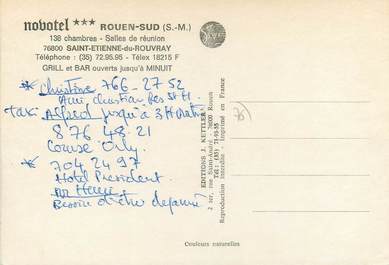 novotel ★★★ ROUEN-SUD (S.-M.)
138 chambres - Salles de réunion
76800 SAINT-ETIENNE-du-ROUVRAY
Téléphone : (35) 72.95.95 - Télex 18215 F
GRILL et BAR ouverts jusqu'à MINUIT
* Christine 766-27-52
Amie christian
Taxi Alfred jusqu'à 3 H
876 48.21
Course Orly
* 704 24 97
Hotel President
Henri
Besoin d'être dejanné
EDITIONS J. KETTLER
2 ter, rue Saint-André - 76000 Rouen
Tél : (35) 71-95-55
Reproduction Interdite - Imprimé en France
Couleurs naturelles